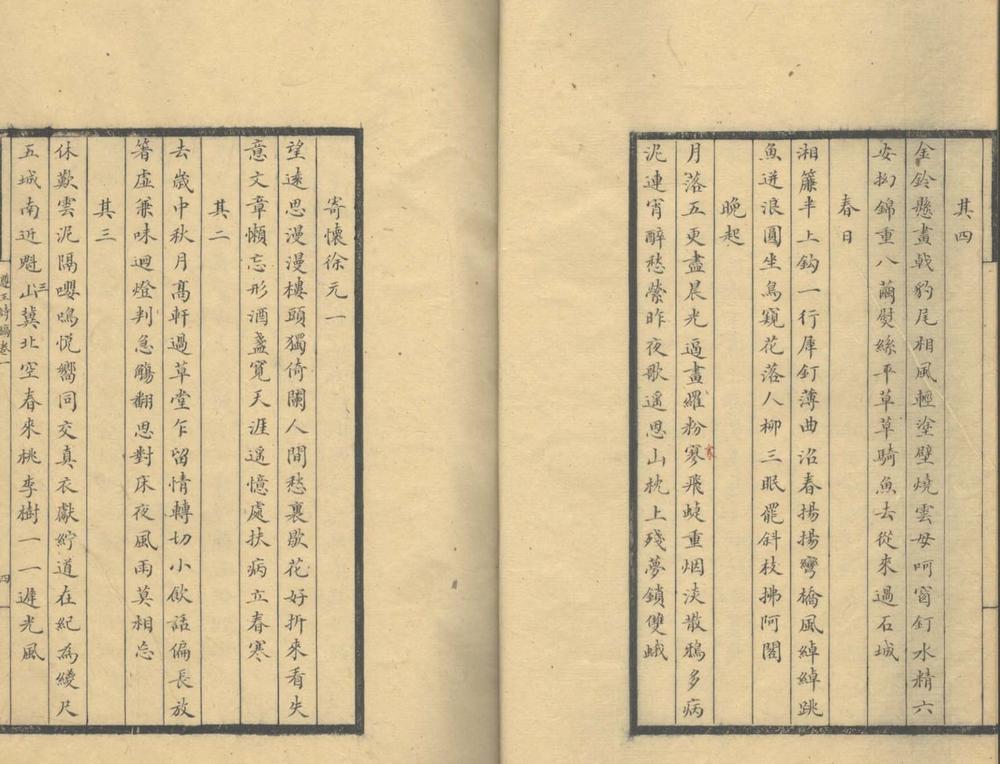 其四
金鈴懸畫戟豹尾相風輕塗壁燒雲母呵窗釘水精六
安抝錦重八繭熨絲平草草騎魚去從來過石城
春日
湘簾半上鈎一行犀釘薄曲沼春揚揚彎橋風綽綽跳
魚迸浪圓坐鳥窺花落人柳三眠罷斜枝拂阿閣
晚起
月落五更盡晨光逼畫羅粉寥飛蜨重烟淡散鴉多病
泥連宵醉愁縈昨夜歌遥思山枕上殘夢鎖雙蛾
寄懷徐元一
望遠思漫漫樓頭獨倚闌人間愁裏歇花好折來看失
意文章懶忘形酒盞寬天涯遥憶處扶病立春寒
其二
去歲中秋月高軒過草堂乍留情轉切小飲話偏長放
箸虛兼味迴燈判急觴翻思對床夜風雨莫相忘
其三
休歎雲泥隔嚶鳴悦響同交真衣獻紵道在紀為綾尺
五城南近魁三山冀北空春來桃李樹一一遲光風
四